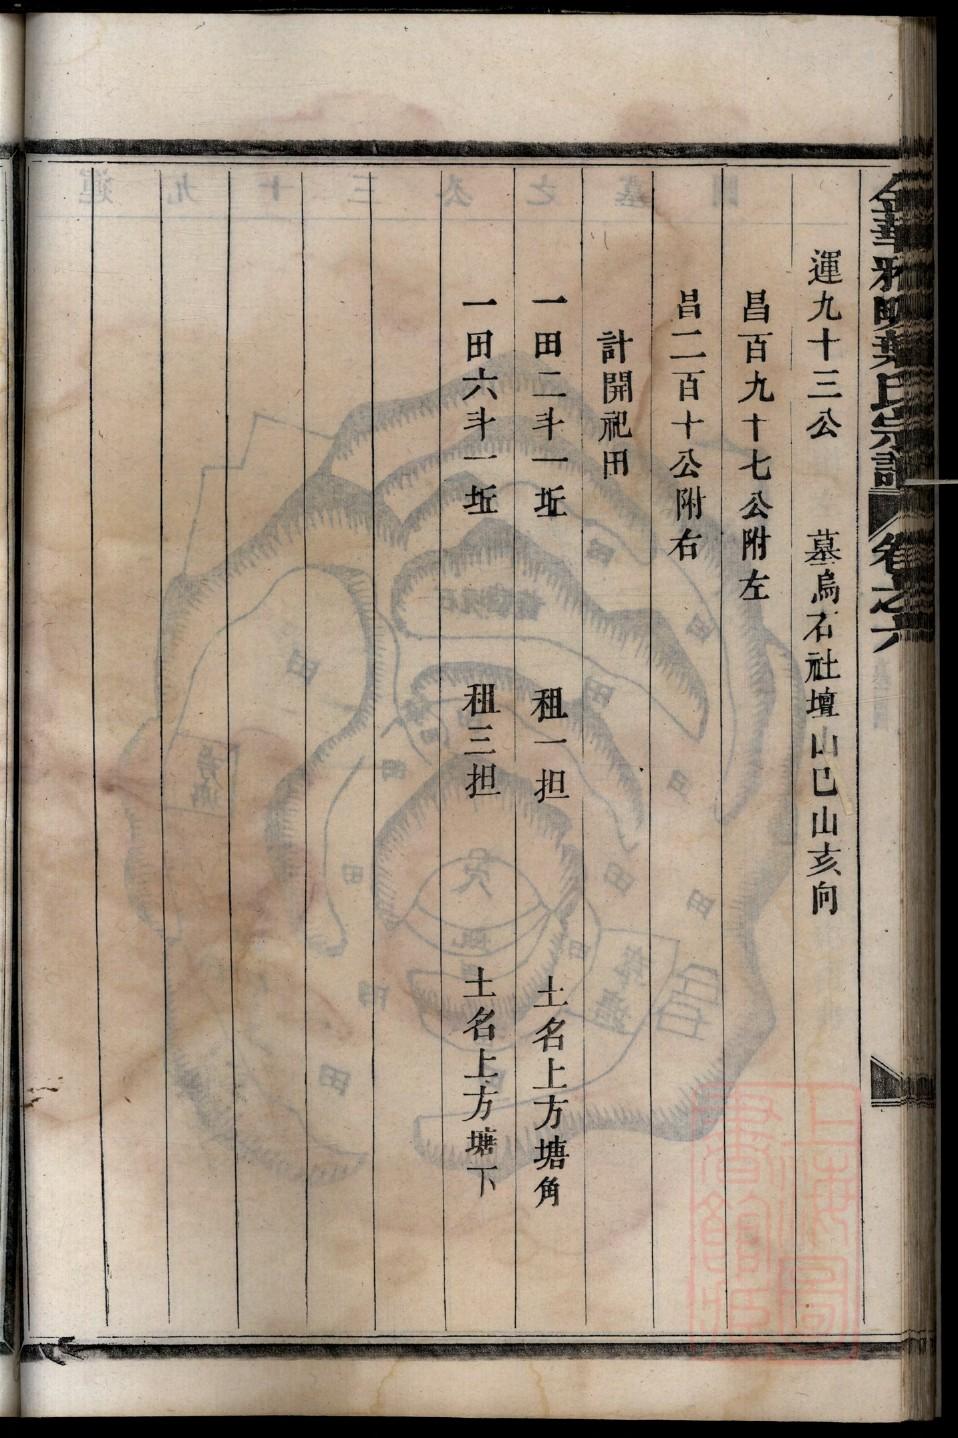 金華雅畈葉氏宗譜 卷之六
運九十三公 墓烏石社壇山巳山亥向
昌百九十七公附左
昌二百十公附右
計開祀田
一田二斗一坵 租一担 土名上方塘角
一田六斗一坵 租三担 土名上方塘下
上海圖書館藏